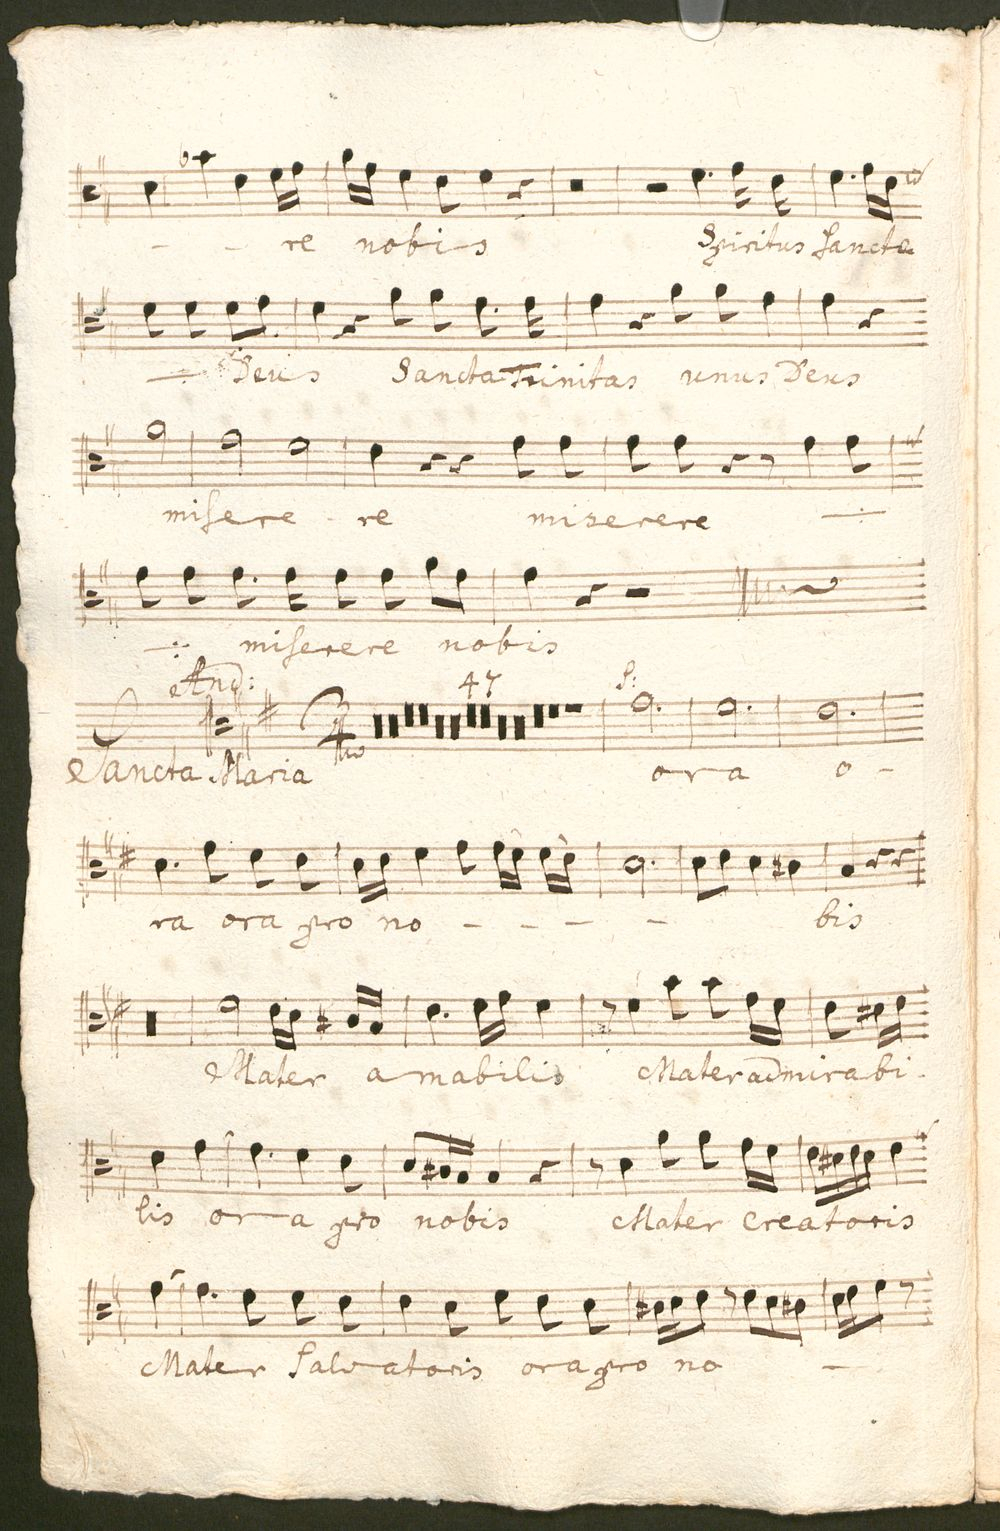 - - re nobis Spiritus Sancte
Deus Sancta Trinitas unus Deus
misere - re miserere
miserere nobis
And: 47 S:
Sancta Maria ora o -
ra ora pro no - - - - bis
Mater amabilis Mater admirabi -
lis ora pro nobis Mater Creatoris
Mater Salvatoris ora pro no - -